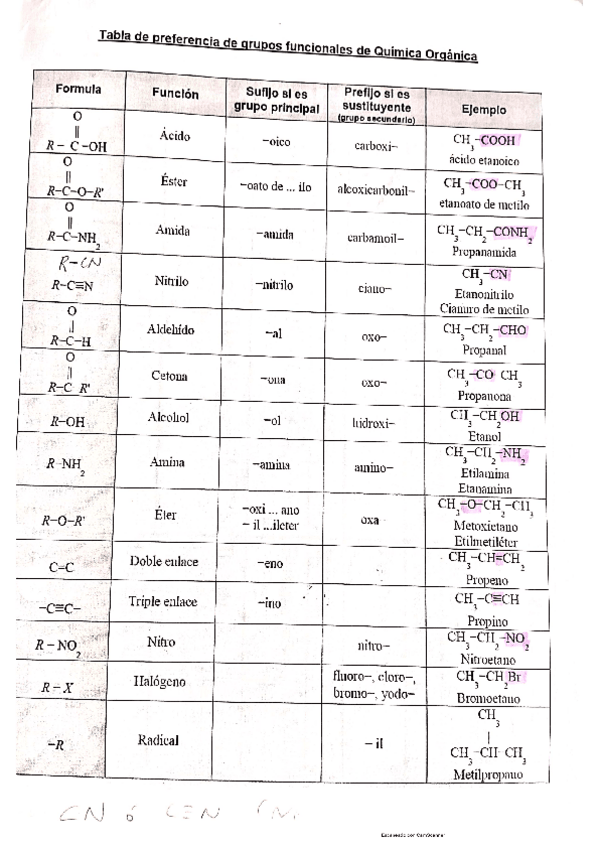 Tabla de preferencia de grupos funcionales de Química Orgánica
Formula Función Sufijo si es grupo principal Prefijo si es sustituyente (grupo secundario) Ejemplo
O
||
R – C –OH Ácido –oico carboxi– CH3–COOH
ácido etanoico
O
||
R–C–O–R' Éster –oato de ... ilo alcoxicarbonil– CH3–COO–CH3
etanoato de metilo
O
||
R–C–NH2 Amida –amida carbamoil– CH3–CH2–CONH2
Propanamida
R–CN
R–C≡N Nitrilo –nitrilo ciano– CH3–CN
Etanonitrilo
Cianuro de metilo
O
||
R–C–H Aldehído –al oxo– CH3–CH2–CHO
Propanal
O
||
R–C R' Cetona –ona oxo– CH3–CO CH3
Propanona
R–OH Alcohol –ol hidroxi– CH3–CH2OH
Etanol
R–NH2 Amina –amina amino– CH3–CH2–NH2
Etilamina
Etanamina
R–O–R' Éter –oxi ... ano
– il ...ileter oxa CH3–O–CH2–CH3
Metoxietano
Etilmetiléter
C=C Doble enlace –eno CH3–CH=CH2
Propeno
–C≡C– Triple enlace –ino CH3–C≡CH
Propino
R – NO2 Nitro nitro– CH3–CH2–NO2
Nitroetano
R – X Halógeno fluoro–, cloro–, bromo–, yodo– CH3–CH2Br
Bromoetano
–R Radical – il CH3
|
CH3–CH CH3
Metilpropano
CN ó CEN
Escaneado por CamScanner